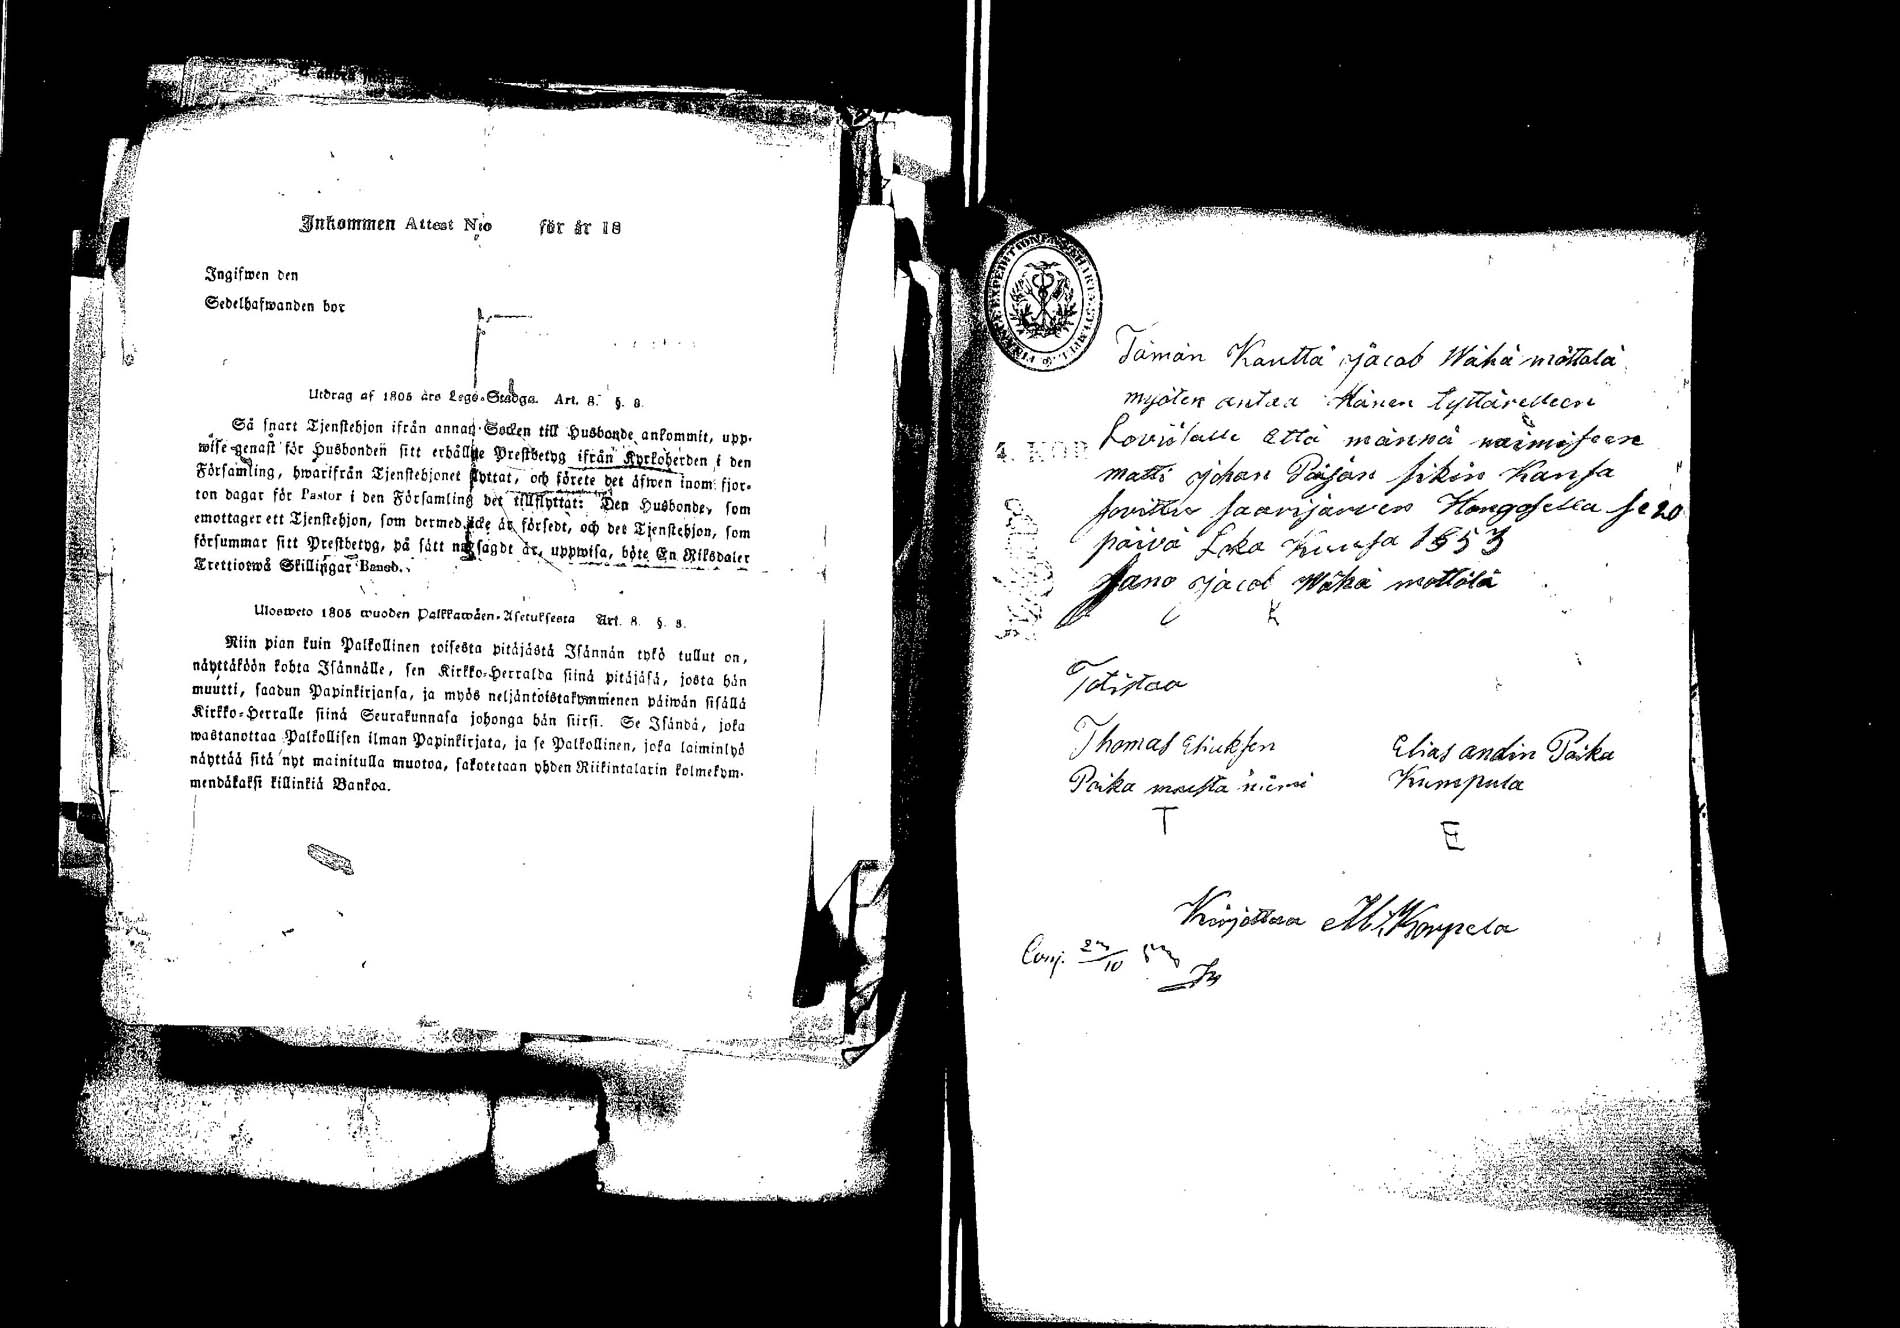 Inkommen Attest N:o för år 18
Ingifwen den
Sedelhafwanden bor
Utdrag af 1805 års Lego-Stadga. Art. 8. §. 8.
Så snart Tjenstehjon ifrån annan Socken till Husbonde ankommit, upp-
wise genast för Husbonden sitt erhållne Prestbetyg ifrån Kyrkoherden i den
Församling, hwarifrån Tjenstehjonet flyttat, och förete det äfwen inom fjor-
ton dagar för Pastor i den Församling det tillflyttat: Den Husbonde, som
emottager ett Tjenstehjon, som dermed icke är försedt, och det Tjenstehjon, som
försummar sitt Prestbetyg, på sätt nu sagdt är, uppwisa, böte En Riksdaler
Trettiotwå Skillingar Banco.
Ulosweto 1805 wuoden Palkkawäen-Asetuksesta Art. 8. §. 8.
Niin pian kuin Palkollinen toisesta pitäjästä Isännän tykö tullut on,
näyttäköön kohta Isännälle, sen Kirkko-Herralda siinä pitäjäsä, josta hän
muutti, saadun Papinkirjansa, ja myös neljäntoistakymmenen päiwän sisällä
Kirkko-Herralle siinä Seurakunnasa johonga hän siirsi. Se Isändä, joka
wastanottaa Palkollisen ilman Papinkirjata, ja se Palkollinen, joka laiminlyö
näyttää sitä nyt mainitulla muotoa, sakotetaan yhden Riikintalarin kolmekym-
mendäkaksi killinkiä Bankoa.
4. KOP
Tämän Kautta Jacob Wähä möttölä
myöten antaa Hänen tyttärelleen
Loviisalle Että männä naimiseen
matti Johan Pojan Kansa
saarijärven Hongosella se 20
päivä Loka Kuusa 1853
Jacob Wähä mottölä
K
Totistaa
Thomas Eliuksen Elias andin Poika
Poika musta niemi Kumpula
T E
Kirjottaa M Korpela